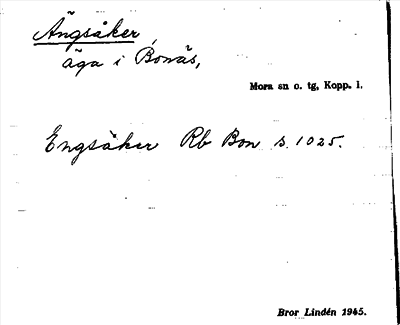 Ängsåker,
äga i Bonäs,
Mora sn o. tg, Kopp. l.
Engsåker Rb Bon s. 1025.
Bror Lindén 1945.